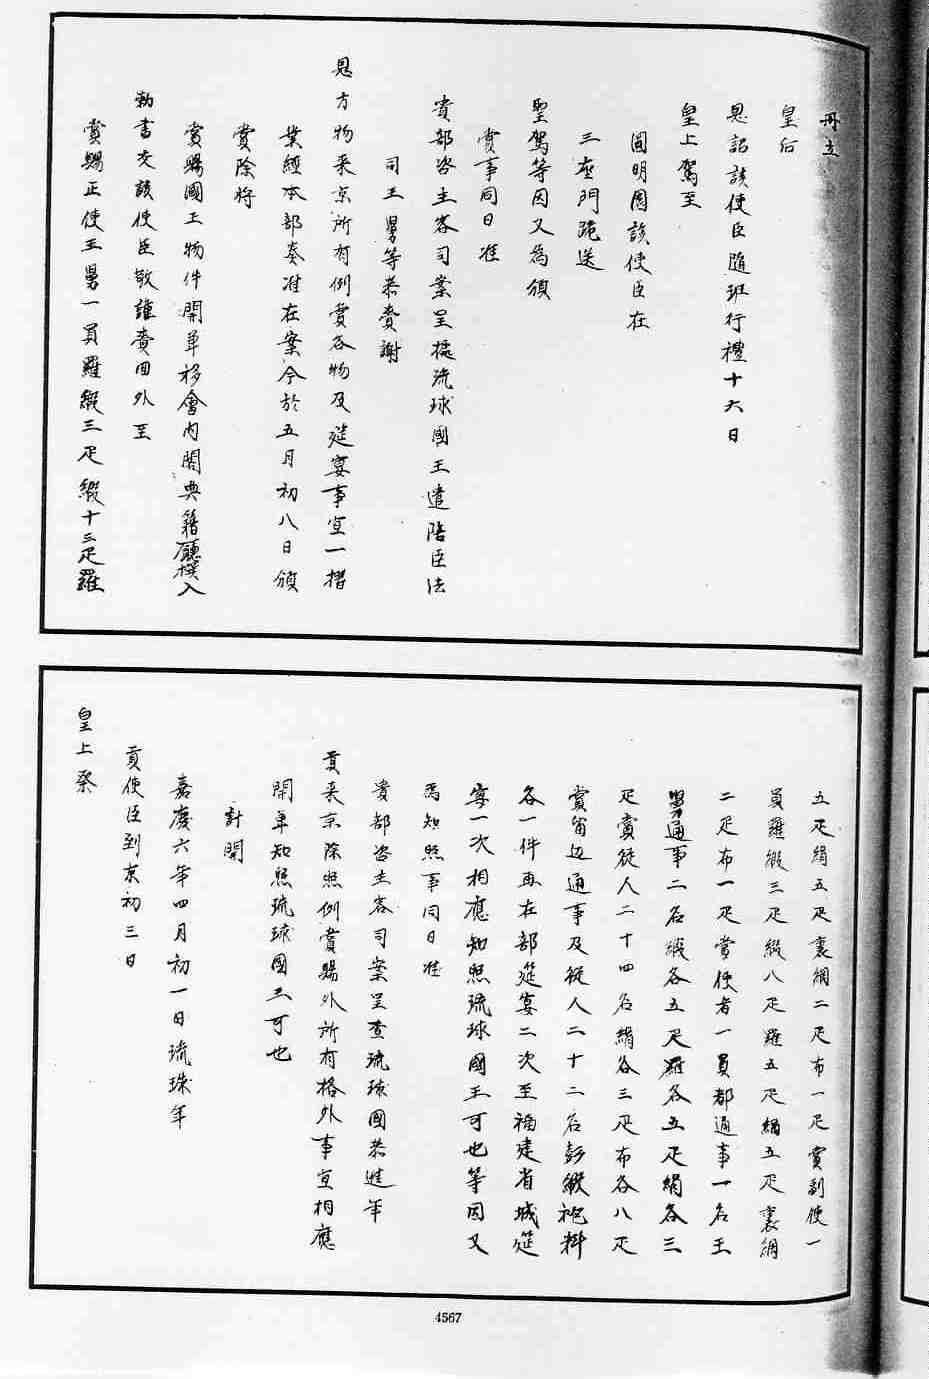 冊立
皇后
恩詔該使臣隨班行禮十六日
皇上駕至
圓明園該使臣在
三座門跪送
聖駕等因又為頒
賞事同日准
貴部咨主客司案呈據琉球國王遣陪臣法
司王舅等恭賫謝
恩方物来京所有例賞各物及筵宴事宜一摺
業經本部奏准在案今於五月初八日頒
賞除將
賞賜國王物件開單移會内閣典籍廳撰入
勅書交該使臣敬謹賫回外至
賞賜正使王舅一員羅緞三疋緞十三疋羅
五疋絹五疋裏綢二疋布一疋賞副使一
員羅緞三疋緞八疋羅五疋絹五疋裏綢
二疋布一疋賞使者一員都通事一名王
舅通事二名緞各五疋羅各五疋絹各三
疋賞從人二十四名絹各三疋布各八疋
賞留边通事及從人二十二名彭緞袍料
各一件再在部筵宴二次至福建省城筵
宴一次相應知照琉球國王可也等因又
為知照事同日准
貴部咨主客司案呈查琉球國恭進年
貢来京除照例賞賜外所有格外事宜相應
開單知照琉球國王可也
計開
嘉慶六年四月初一日琉球年
貢使臣到京初三日
皇上祭
4567